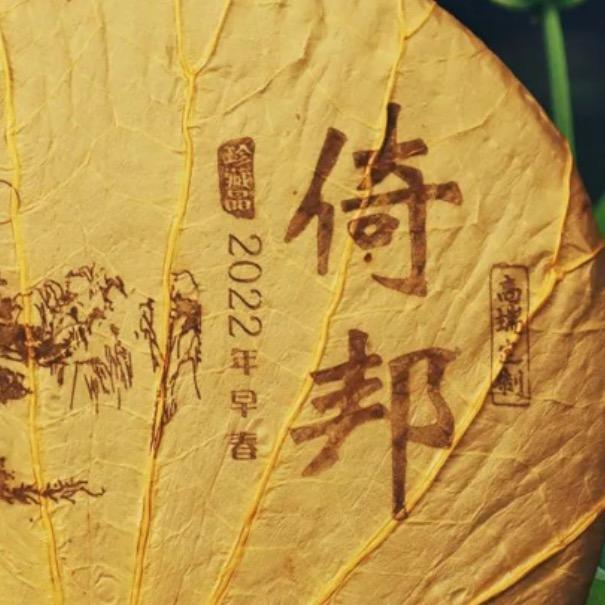 高端定制
倚邦
珍藏品
2022年早春